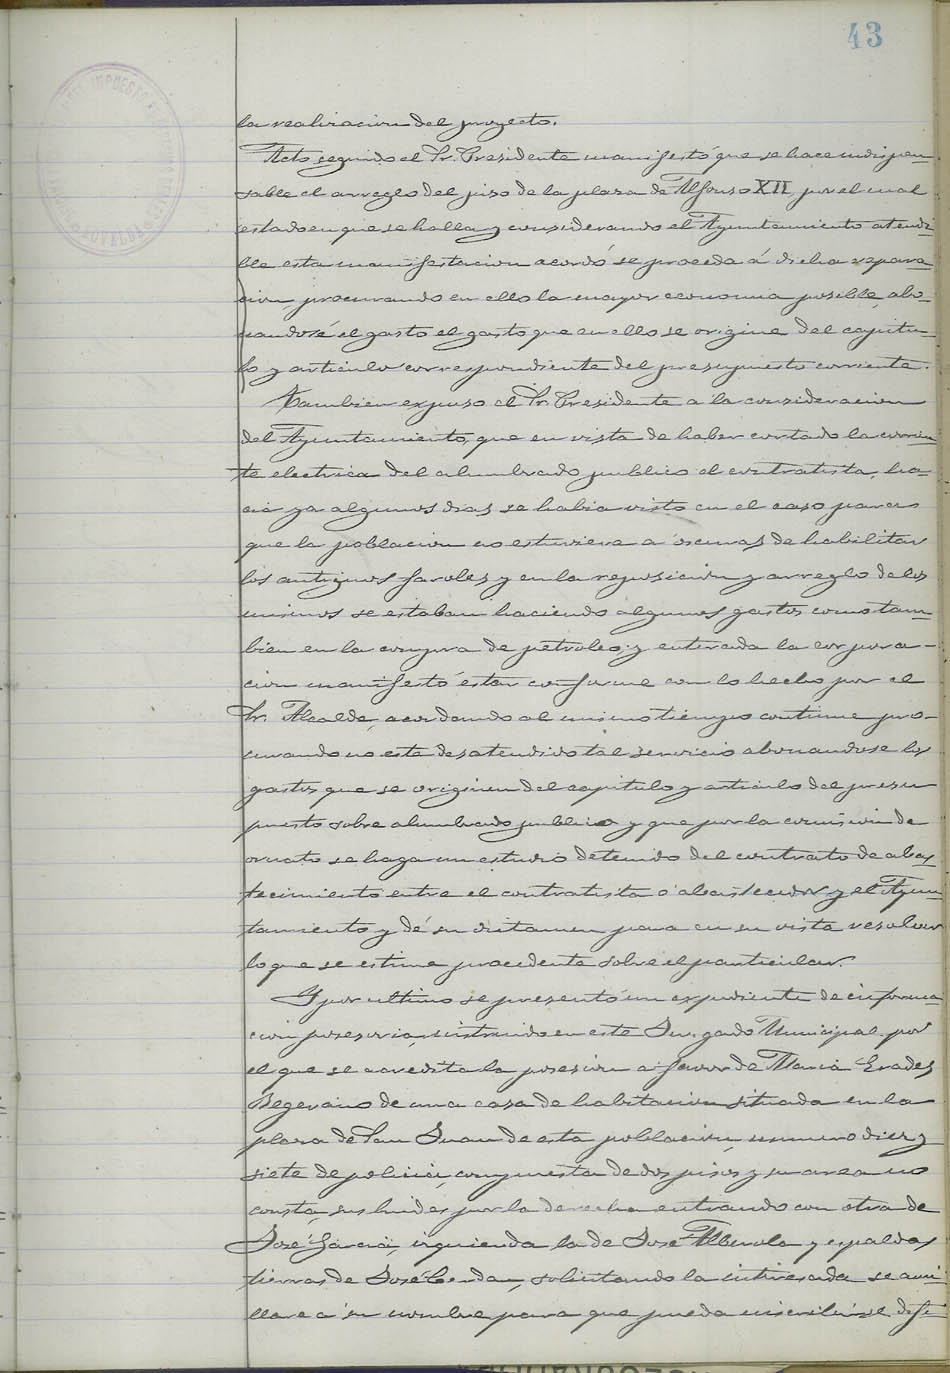 43
la realizacion del proyecto.
Acto seguido el Sr. Presidente manifestó que se hace indispen-
sable el arreglo del piso de la plaza de Alfonso XII por el cual
estado en que se halla y considerando el Ayuntamiento atendi-
ble esta manifestacion acordó se proceda á dicha repara-
cion, procurando en ello la mayor economia posible, abo-
nandosé el gasto el gasto que en ello se origine del capitu-
lo y articulo correspondiente del presupuesto corriente.
Tambien expuso el Sr. Presidente a la consideracion
del Ayuntamiento, que en vista de haber cortado la corrien-
te electrica del alumbrado publico el contratista, ha-
cia ya algunos dias se habia visto en el caso para
que la poblacion no estuviera a oscuras de habilitar
los antiguos faroles y en la reposicion y arreglo de los
mismos se estaban haciendo algunos gastos como tam-
bien en la compra de petroleo; y enterada la corpora-
cion manifestó estar conforme con lo hecho por el
Sr. Alcalde, acordando al mismo tiempo continue pro-
curando no este desatendido tal servicio abonandose los
gastos que se originen del capitulo y articulo del presu
puesto sobre alumbrado publico y que por la comision de
ornato se haga un estudio detenido del contrato de abas
tecimiento entre el contratista o abastecedor y el Ayun-
tamiento y dé su dictamen para en su vista resolver
lo que se estime procedente sobre el particular.
Y por ultimo se presentó un expediente de informa-
cion posesoria, instruido en este Juzgado Municipal por
el que se acredita la posesion a favor de Maria Erades
Begerano de una casa de habitacion situada en la
plaza de San Juan de esta poblacion, numero diez y
siete de policia, compuesta de dos pisos y su area no
consta, sus lindes por la derecha entrando con otra de
José Garcia, izquierda la de José Alberola y espaldas
tierras de José Cerdan, solicitando la interesada se ami-
llare a su nombre para que pueda inscribirse defi-